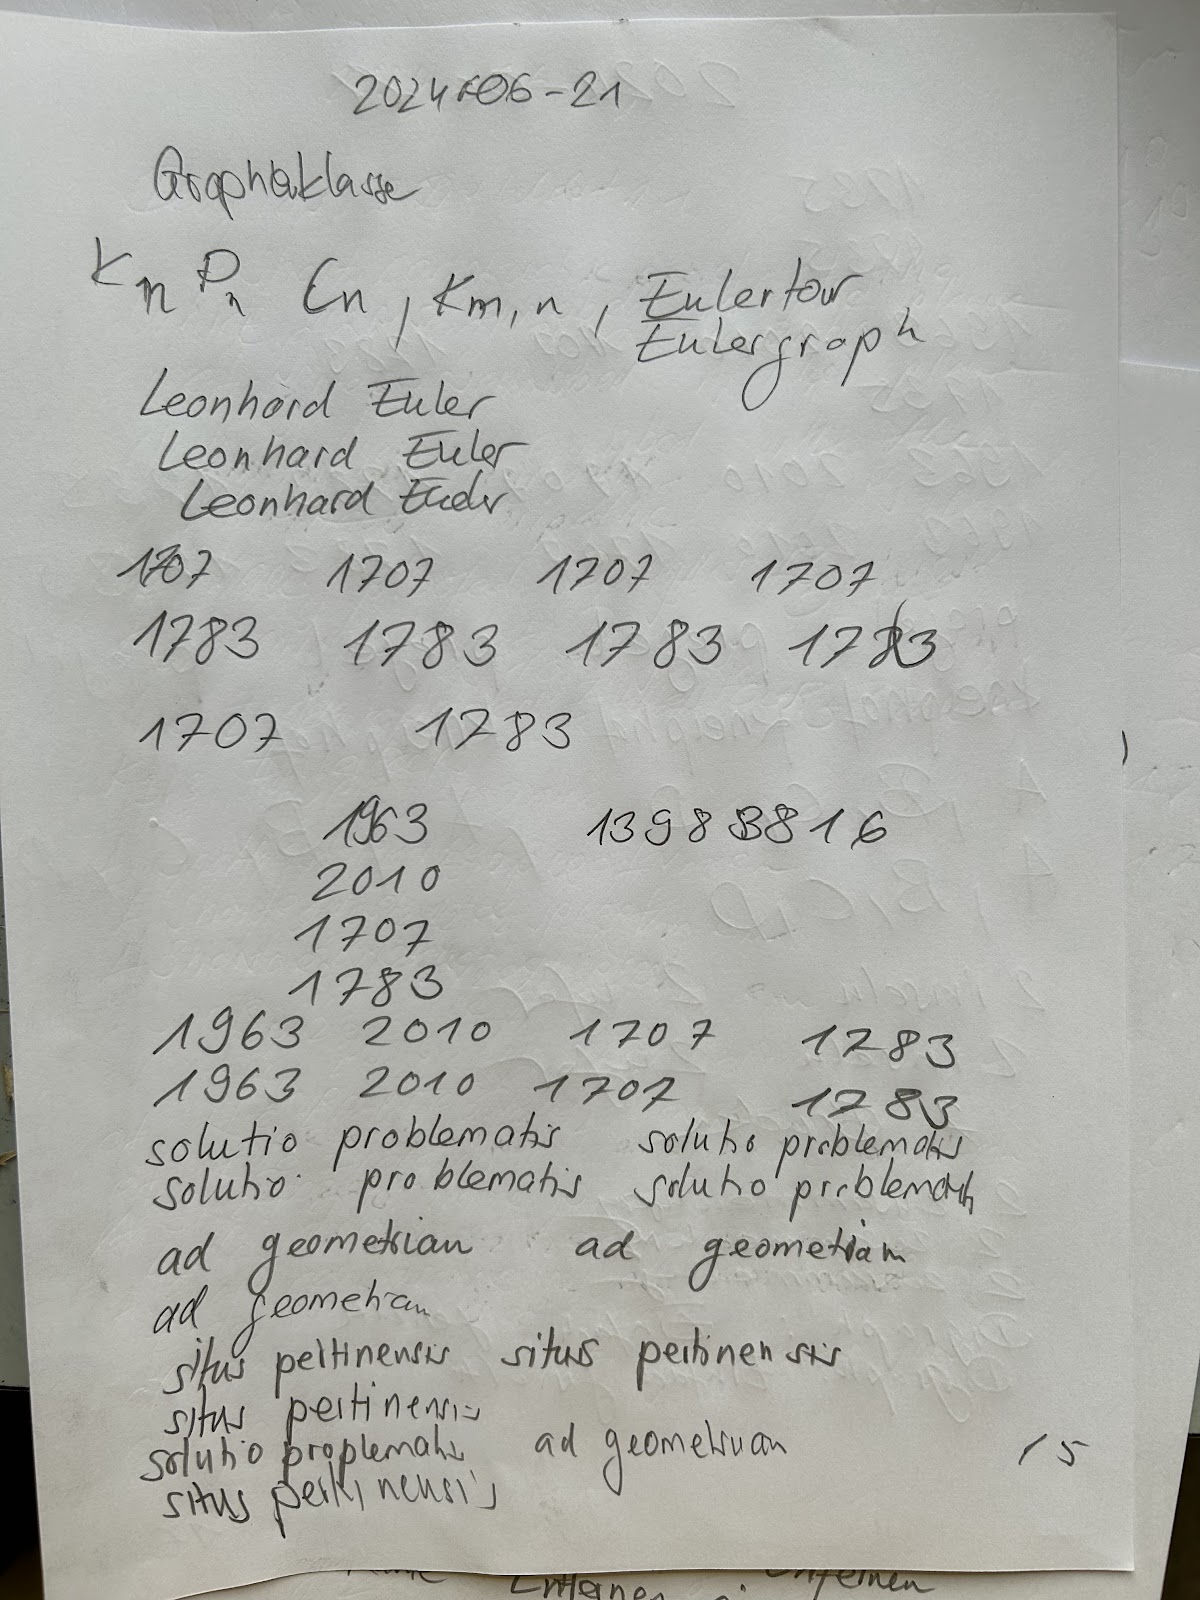 2024-06-21
Graphenklasse
Kn Pn Cn, Km,n, Eulertour
Eulergraph
Leonhard Euler
Leonhard Euler
Leonhard Euler
1707 1707 1707 1707
1783 1783 1783 1783
1707 1783
1963 13983816
2010
1707
1783
1963 2010 1707 1783
1963 2010 1707 1783
solutio problematis solutio problematis
solutio problematis solutio problematis
ad geometriam ad geometriam
ad geometriam
situs pertinensis situs pertinensis
situs pertinensis
solutio proplematis ad geometriam
situs pertinensis 15
Entfernen